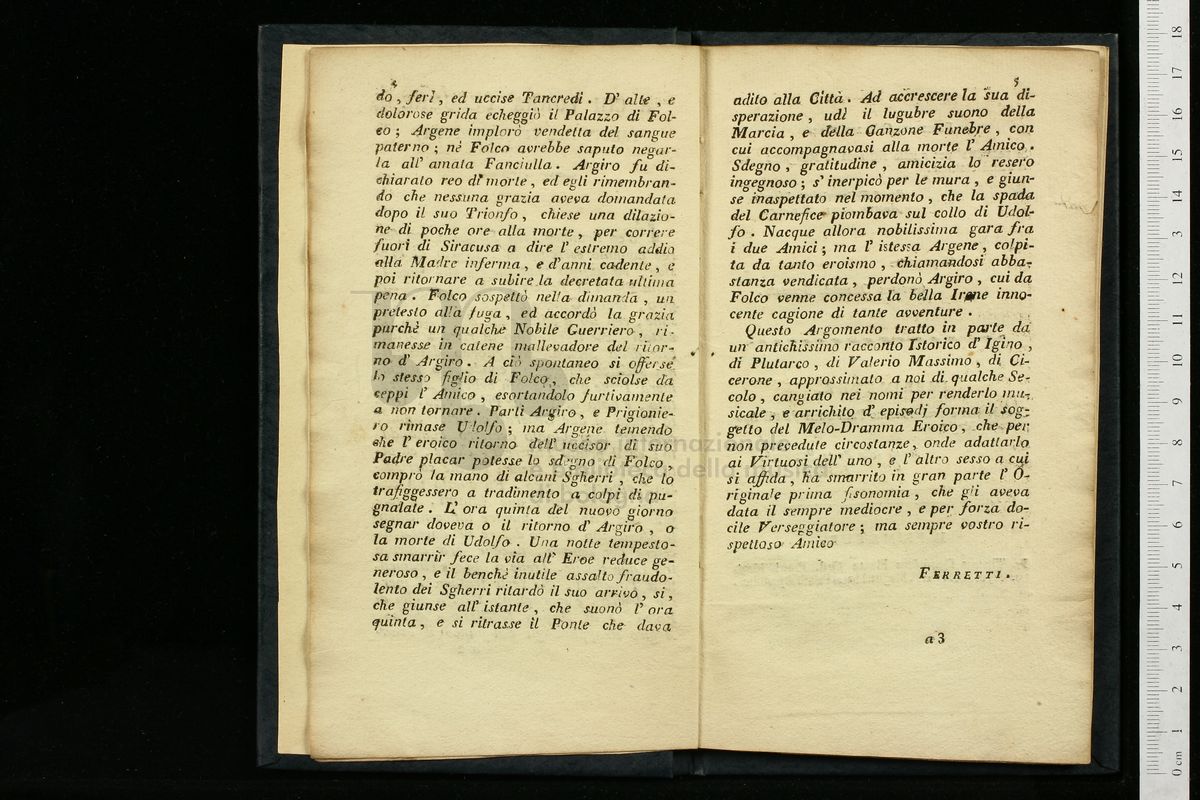 4
do, ferì, ed uccise Tancredi. D' alte, e
dolorose grida echeggiò il Palazzo di Fol-
co; Argene implorò vendetta del sangue
paterno; nè Folco avrebbe saputo negar-
la all' amata Fanciulla. Argiro fu di-
chiarato reo di morte, ed egli rimembran-
do che nessuna grazia aveva domandata
dopo il suo Trionfo, chiese una dilazio-
ne di poche ore alla morte, per correre
fuori di Siracusa a dire l' estremo addio
alla Madre inferma, e d'anni cadente, e
poi ritornare a subire la decretata ultima
pena. Folco sospettò nella dimanda, un
pretesto alla fuga, ed accordò la grazia
purchè un qualche Nobile Guerriero, ri-
manesse in catene mallevadore del ritor-
no d' Argiro. A ciò spontaneo si offerse
lo stesso figlio di Folco, che sciolse da
ceppi l' Amico, esortandolo furtivamente
a non tornare. Partì Argiro, e Prigionie-
ro rimase Udolfo; ma Argene temendo
che l' eroico ritorno dell' uccisor di suo
Padre placar potesse lo sdegno di Folco,
comprò la mano di alcuni Sgherri, che lo
trafiggessero a tradimento a colpi di pu-
gnalate. L' ora quinta del nuovo giorno
segnar doveva o il ritorno d' Argiro, o
la morte di Udolfo. Una notte tempesto-
sa smarrir fece la via all' Eroe reduce ge-
neroso, e il benchè inutile assalto fraudo-
lento dei Sgherri ritardò il suo arrivo, sì,
che giunse all' istante, che suonò l' ora
quinta, e si ritrasse il Ponte che dava
5
adito alla Città. Ad accrescere la sua di-
sperazione, udì il lugubre suono della
Marcia, e della Canzone Funebre, con
cui accompagnavasi alla morte l' Amico.
Sdegno, gratitudine, amicizia lo resero
ingegnoso; s' inerpicò per le mura, e giun-
se inaspettato nel momento, che la spada
del Carnefice piombava sul collo di Udol-
fo. Nacque allora nobilissima gara fra
i due Amici; ma l' istessa Argene, colpi-
ta da tanto eroismo, chiamandosi abba-
stanza vendicata, perdonò Argiro, cui da
Folco venne concessa la bella Irene inno-
cente cagione di tante avventure.
Questo Argomento tratto in parte da
un antichissimo racconto Istorico d' Igino,
di Plutarco, di Valerio Massimo, di Ci-
cerone, approssimato a noi di qualche Se-
colo, cangiato nei nomi per renderlo mu-
sicale, e arrichito d' episodj forma il sog-
getto del Melo-Dramma Eroico, che per
non prevedute circostanze, onde adattarlo
ai Virtuosi dell' uno, e l' altro sesso a cui
si affida, ha smarrito in gran parte l' O-
riginale prima fisonomia, che gli aveva
data il sempre mediocre, e per forza do-
cile Verseggiatore; ma sempre vostro ri-
spettoso Amico
FERRETTI.
a 3